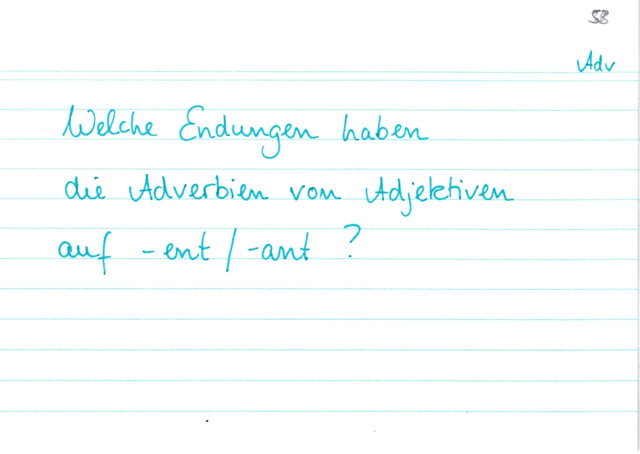 58
Adv
Welche Endungen haben
die Adverbien von Adjektiven
auf -ent/-ant?